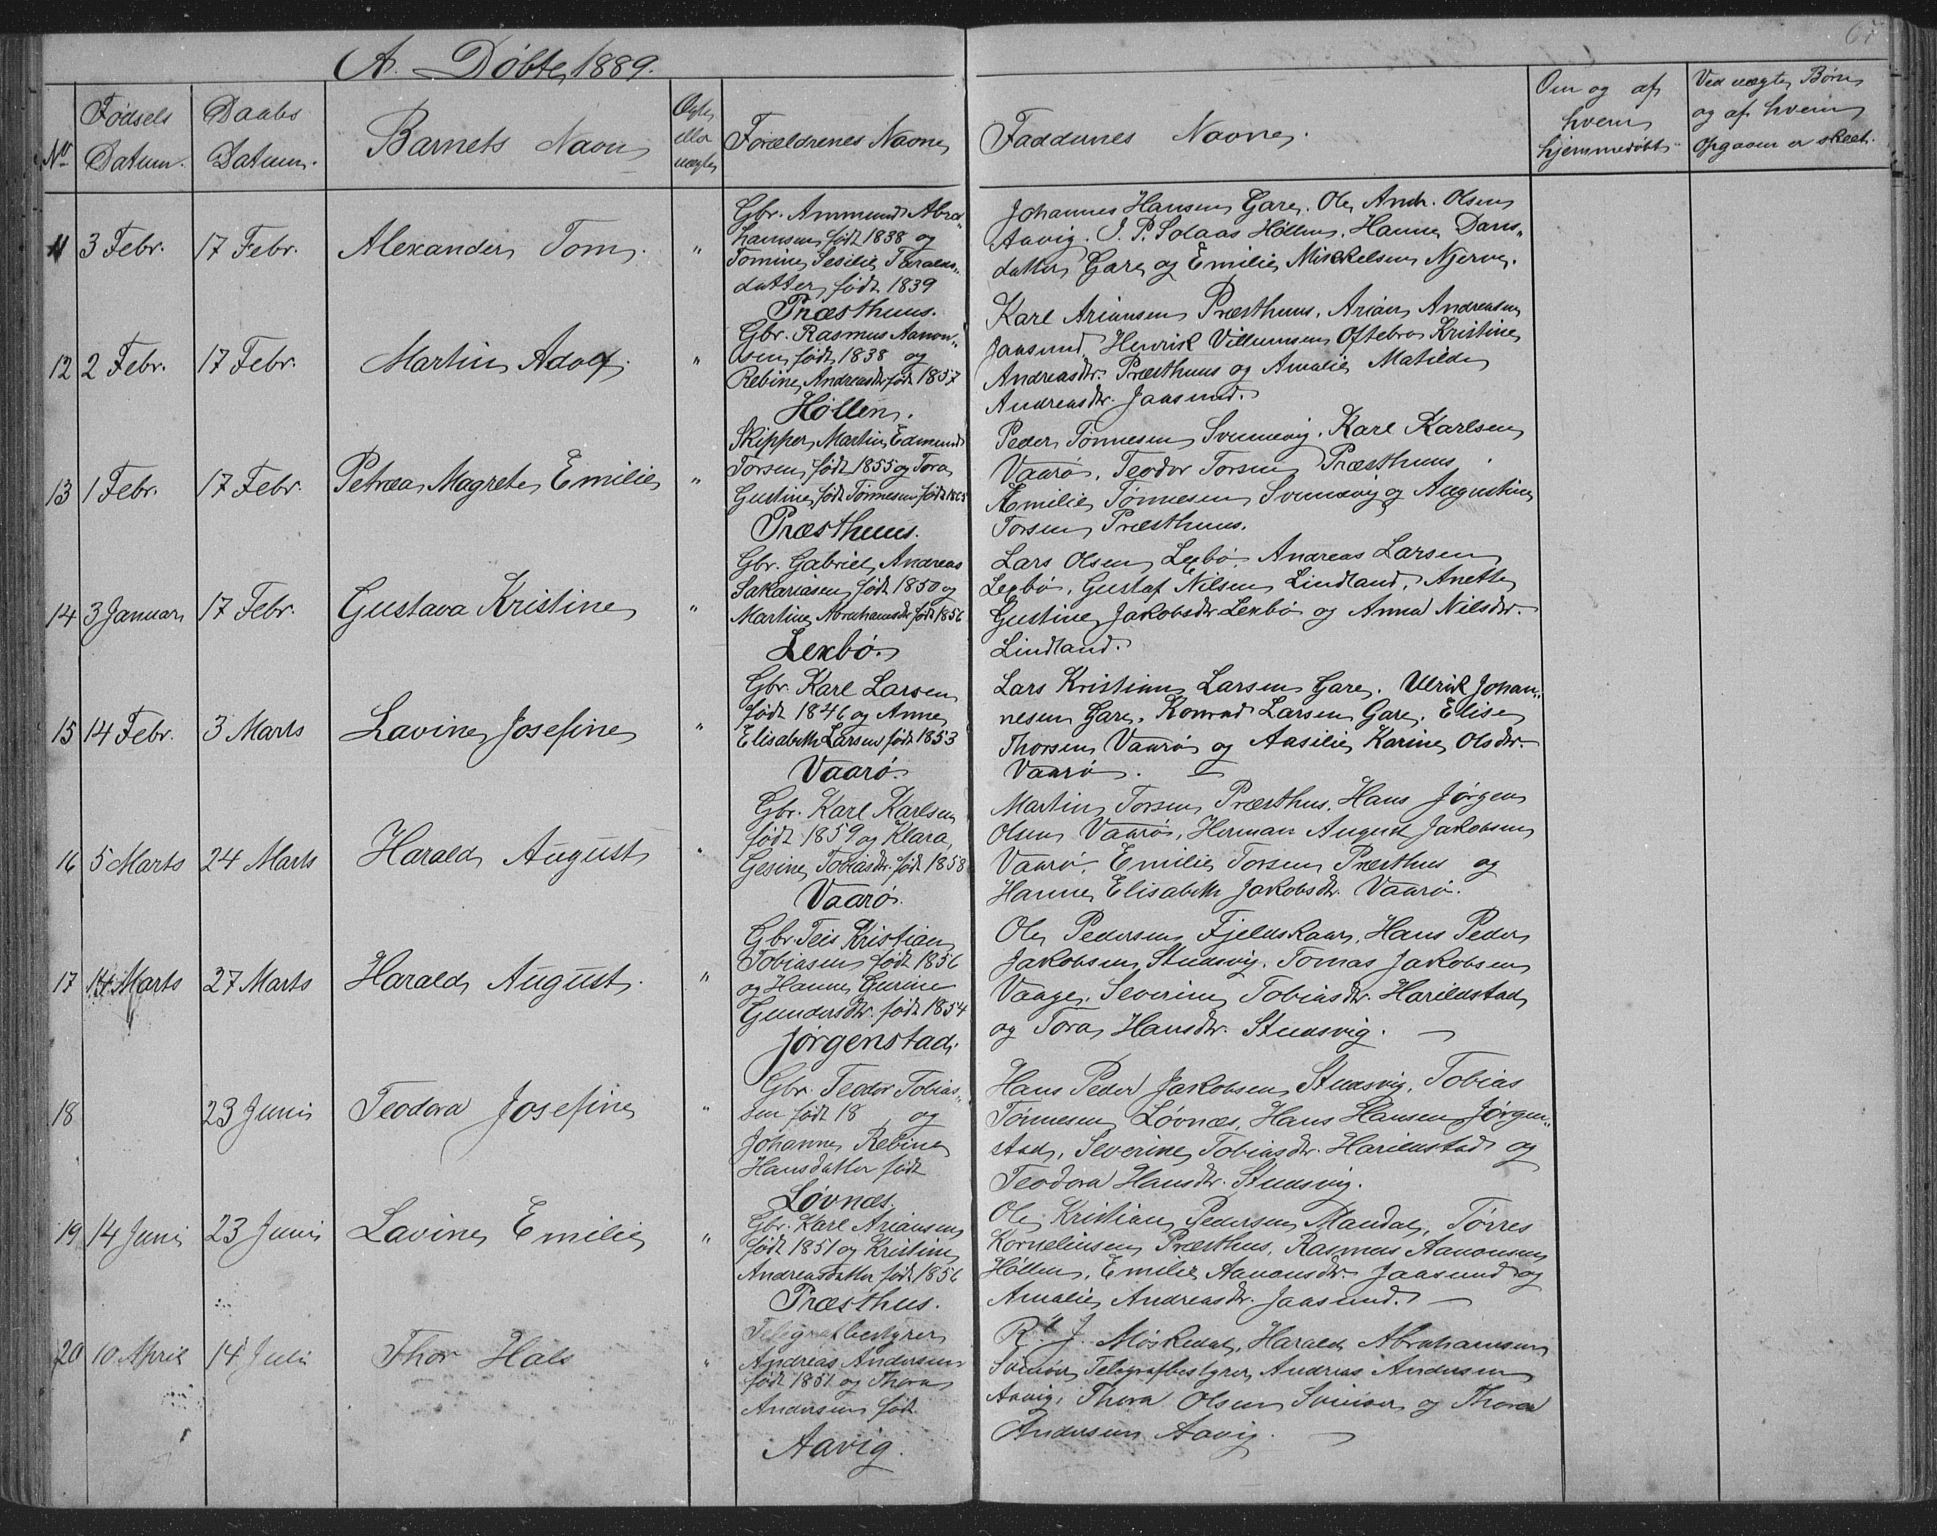 A. Døbte, 1889.
67
No
Fødsels Datum.
Daabs Datum.
Barnets Navn
Ægte eller uægte
Forældrenes Navne
Faddernes Navne.
Om og af hvem hjemmedøbt
Ved uægte Børn og af hvem Opgaven er skeet.
11 3 Febr. 17 Febr. Alexander Tom. "
Gbr. Ammund Abra-
hamsen født 1838 og
Tomine Sesilie Taralds-
datter født 1839
Præsthuus.
Johannes Hansen Gare. Ole Andr. Olsen
Aavig. J. P. Solaas Høllen, Hanne Dans-
datter Gare og Emilie Mikkelsen Njerve.
12 2 Febr. 17 Febr. Martin Adolf. "
Gbr. Rasmus Aanon-
sen født 1838 og
Rebine Andreasdtr født 1857
Høllen.
Karl Ariansen Præsthuus. Arian Andreasen
Jaasund, Henrik Villumsen Oftebro Kristine
Andreasdtr. Præsthuus og Amalie Matilde
Andreasdtr. Jaasund.
13 1 Febr. 17 Febr. Petrea Magrete Emilie "
Skipper Martin Edmund
Torsen født 1855 og Tora
Gustine født Tønnesen født
Præsthuus.
Peder Tønnesen Svennevig. Karl Karlsen
Vaarø. Teodor Torsen Præsthuus.
Emilie Tønnesen Svennevig og Augustine
Torsen Præsthuus.
14 3 Januar 17 Febr. Gustava Kristine "
Gbr. Gabriel Andreas
Sakariasen født 1850 og
Martine Abrahamsdtr født 1856
Lexbø.
Lars Olsen Lexbø. Andreas Larsen
Lexbø, Gustaf Nilsen Lindland, Anette
Gustine Jakobsdtr Lexbø og Anna Nilsdtr.
Lindland.
15 14 Febr. 3 Marts Lavine Josefine "
Gbr. Karl Larsen
født 1846 og Anne
Elisabeth Larsen født 1853
Vaarø.
Lars Kristian Larsen Gare. Ulrik Johan-
nesen Gare. Konrad Larsen Gare. Elise
Thorsen Vaarø og Aasilie Karine Olsdtr.
Vaarø.
16 5 Marts 24 Marts Harald August "
Gbr. Karl Karlsen
født 1859 og Klara
Gesine Tobiasdtr. født 1858
Vaarø.
Martin Torsen Præsthus, Hans Jørgen
Olsen Vaarø, Herman August Jakobsen
Vaarø. Emilie Torsen Præsthus og
Hanne Elisabeth Jakobsdtr. Vaarø.
17 14 Marts 27 Marts Harald August. "
Gbr. Teis Kristian
Tobiasen født 1856
og Hanne Gurine
Gundersdtr. født 1854
Jørgenstad.
Ole Pedersen Fjeldskaar, Hans Peder
Jakobsen Studsvig, Tomas Jakobsen
Vaage. Severine Tobiasdtr. Harildstad
og Tora Hansdtr. Studsvig.
18 23 Juni Teodora Josefine "
Gbr. Teodor Tobias-
sen født 18 og
Johanne Rebine
Hansdatter født
Løvnæs.
Hans Peder Jakobsen Studsvig, Tobias
Tønnesen Løvnæs, Hans Hansen Jørgen-
stad. Severine Tobiasdtr. Harildstad og
Teodora Hansdtr. Studsvig.
19 14 Juni 23 Juni Lavine Emilie "
Gbr. Karl Ariansen
født 1851 og Kristine
Andreasdatter født 1856
Præsthus.
Ole Kristian Pedersen Mandal, Tørres
Korneliusen Præsthus, Rasmus Aanonsen
Høllen, Emilie Aanonsdtr. Jaasund og
Amalie Andreasdtr. Jaasund.
20 10 April 14 Juli Thor Hals "
Telegrafbestyrer
Andreas Andersen
født 1851 og Thora
Andersen født
Aavig.
R. J. Møskedal, Harald Abrahamsen
Svinør, Telegrafbestyrer Andreas Andersen
Aavig, Thora Olsen Svinør og Thora
Andersen Aavig.